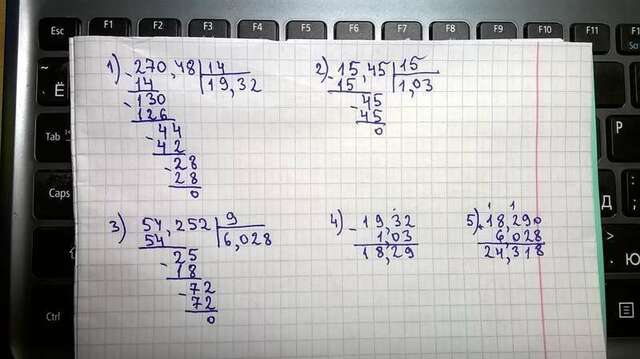 Esc F1 F2 F3 F4 F5 F6 F7 F8 F9 F10 F11
Ё
Tab
Caps
Ctrl
Д
Ю
1) 270,48 | 14
- 14 | 19,32
- 130
126
- 44
42
- 28
28
0
2) 15,45 | 15
- 15 | 1,03
- 45
45
0
3) 54,252 | 9
54 | 6,028
- 25
18
- 72
72
0
4) - 19,32
1,03
18,29
5) + 18,290
6,028
24,318